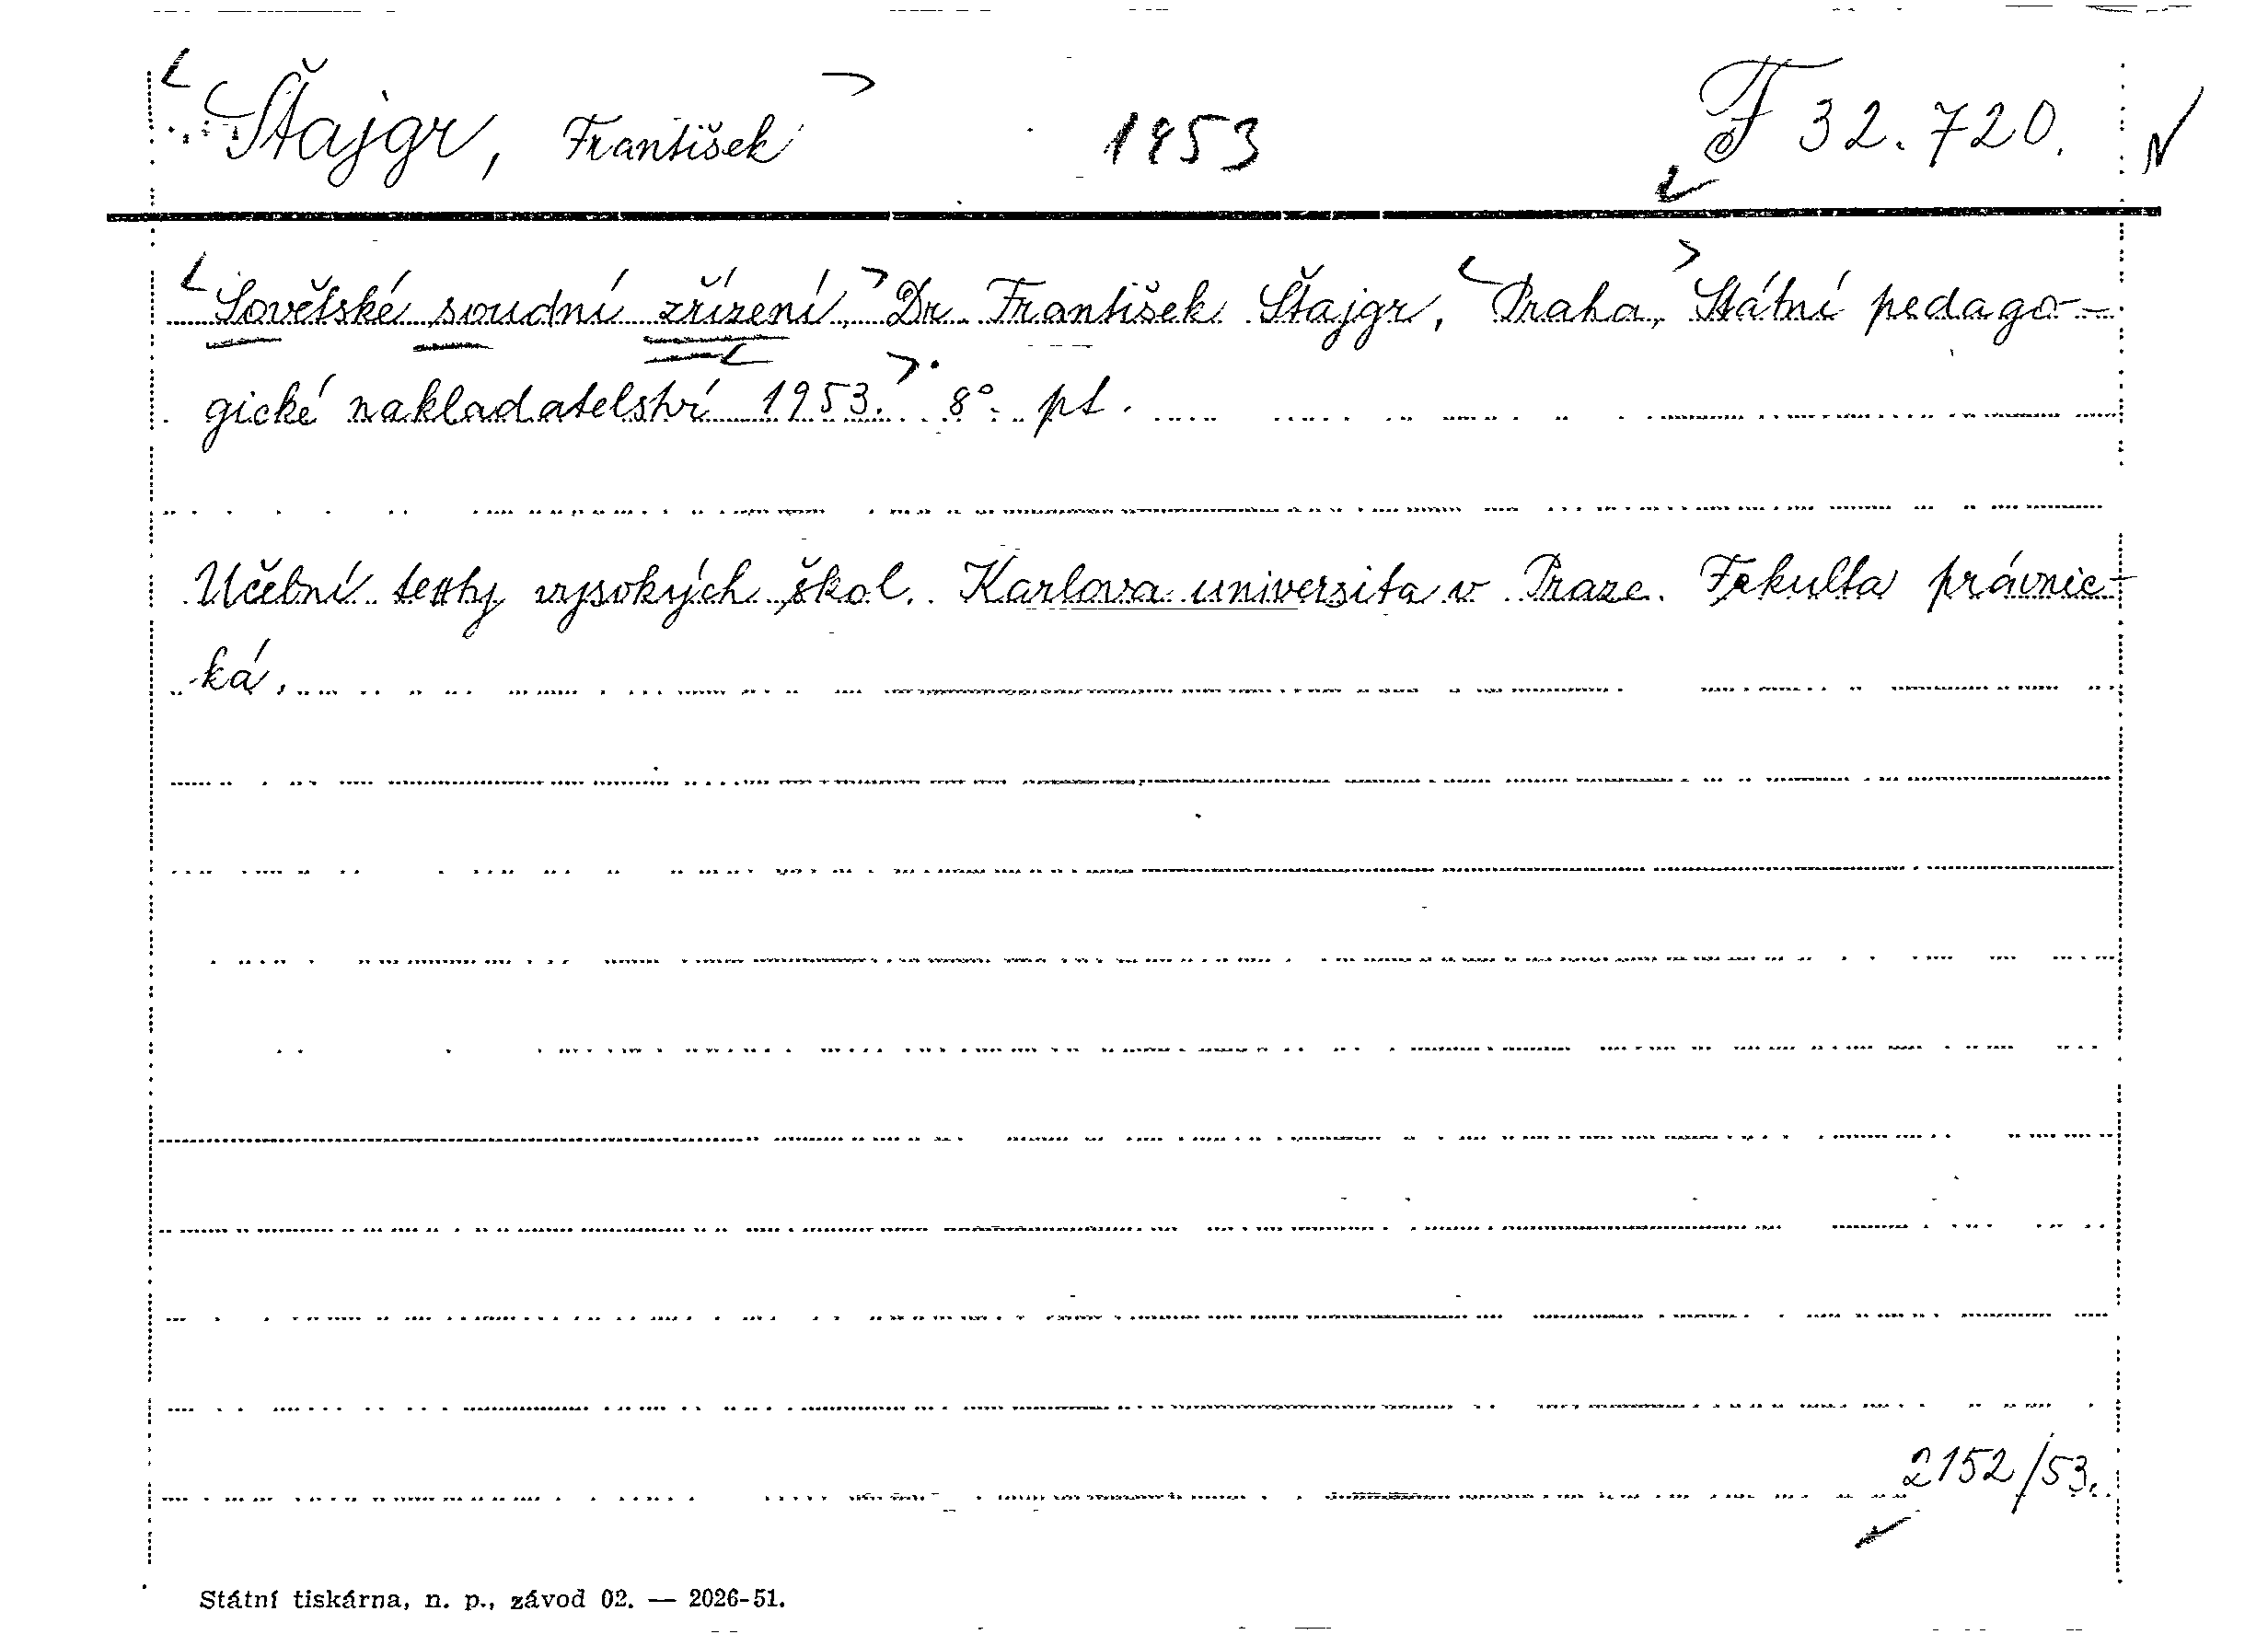 Štajgr, František 1953 F 32.720.
Sovětské soudní zřízení, Dr. František Štajgr, Praha, Státní pedago-
gické nakladatelství 1953. 8°. pt.
Učební texty vysokých škol. Karlova universita v Praze. Fakulta právnic-
ká.
2152/53.
Státní tiskárna, n. p., závod 02. — 2026-51.